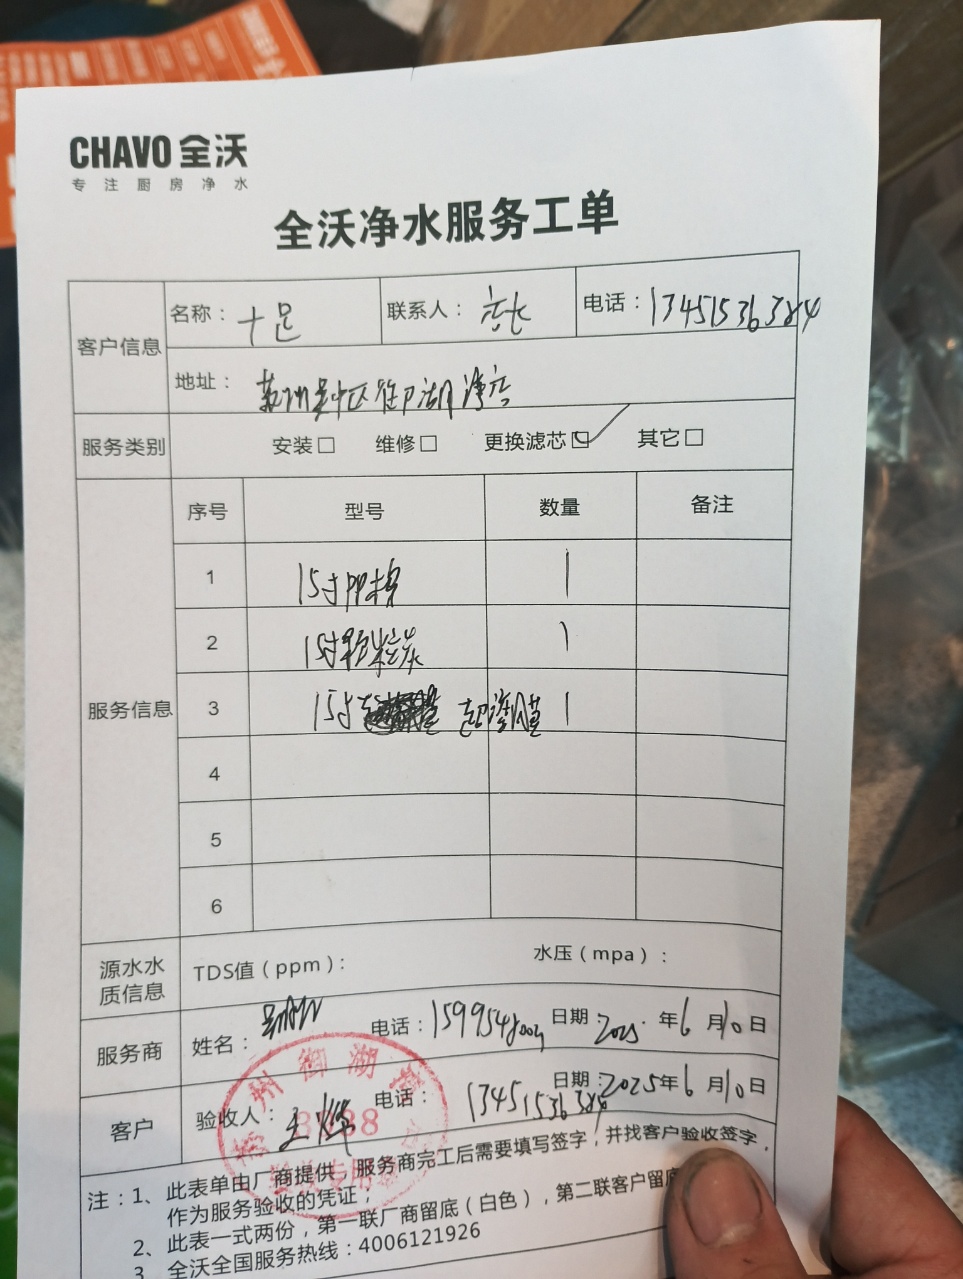 CHAVO 全沃
专注厨房净水
全沃净水服务工单
客户信息 名称：十足 联系人：店长 电话：13451536384
地址：苏州吴中区御湖湾店
服务类别 安装□ 维修□ 更换滤芯☑ 其它□
服务信息 序号 型号 数量 备注
1 15寸PP棉 1
2 15寸颗粒炭 1
3 15寸 超滤膜 1
4
5
6
源水水质信息 TDS值（ppm）： 水压（mpa）：
服务商 姓名： 电话： 日期：2025年6月10日
客户 验收人：王 电话：13451536384 日期：2025年6月10日
州御湖湾
3888
专用章
注：1、此表单由厂商提供，服务商完工后需要填写签字，并找客户验收签字，
作为服务验收的凭证；
2、此表一式两份，第一联厂商留底（白色），第二联客户留底
3、全沃全国服务热线：4006121926